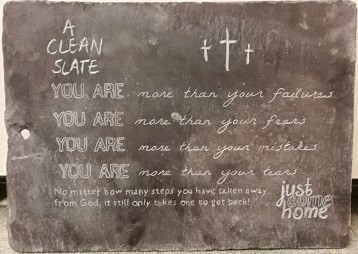 A
CLEAN
SLATE
YOU ARE more than your failures
YOU ARE more than your fears
YOU ARE more than your mistakes
YOU ARE more than your tears
No matter how many steps you have taken away
from God, it still only takes one to get back!
just
come
home